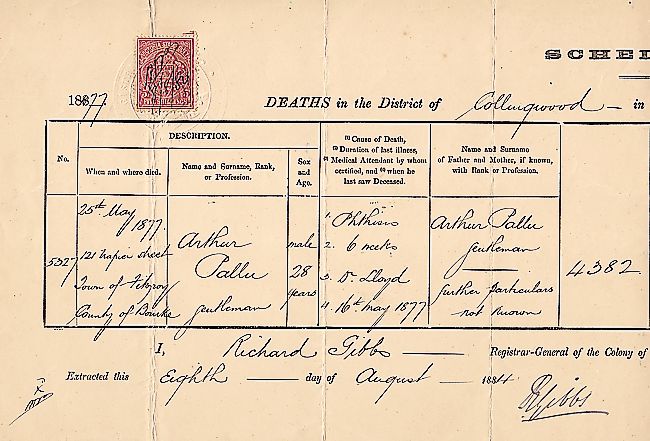 SCHED
1877
DEATHS in the District of Collingwood — in
DESCRIPTION.
No.
When and where died.
Name and Surname, Rank,
or Profession.
Sex
and
Age.
(1) Cause of Death,
(2) Duration of last illness,
(3) Medical Attendant by whom
certified, and (4) when he
last saw Deceased.
Name and Surname
of Father and Mother, if known,
with Rank or Profession.
5327
25th May
1877.
121 Napier street
Town of Fitzroy
County of Bourke
Arthur
Pallu
gentleman
male
28
years
1. Phthisis
2. 6 weeks
3. Dr Lloyd
4. 16th May 1877
Arthur Pallu
gentleman
further particulars
not known
4382
I, Richard Gibbs — Registrar-General of the Colony of
Extracted this Eighth — day of August — 1884
RGibbs